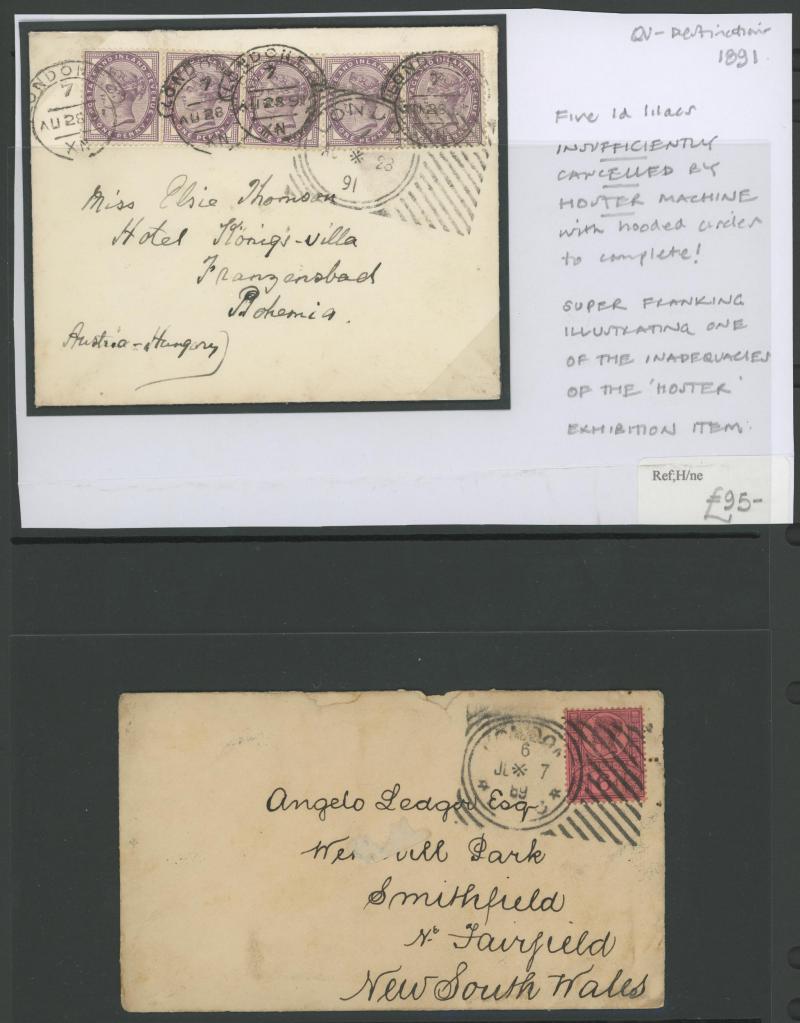 QV - Destinations
1891
Five 1d lilacs
INSUFFICIENTLY
CANCELLED BY
HOSTER MACHINE
with hooded circles
to complete!
SUPER FRANKING
ILLUSTRATING ONE
OF THE INADEQUACIES
OF THE 'HOSTER'
EXHIBITION ITEM
Ref;H/ne
£95-
POSTAGE AND INLAND REVENUE
ONE PENNY
LONDON
7
AU 28
XN
LONDON
7
AU 28
XN
LONDON
7
AU 28 91
XN
28
91
Miss Elsie Thomson
Hotel König's-villa
Franzensbad
Bohemia.
Austria-Hungary
LONDON
6
JU 7
89
Angelo Esq
Park
Smithfield
Nr Fairfield
New South Wales